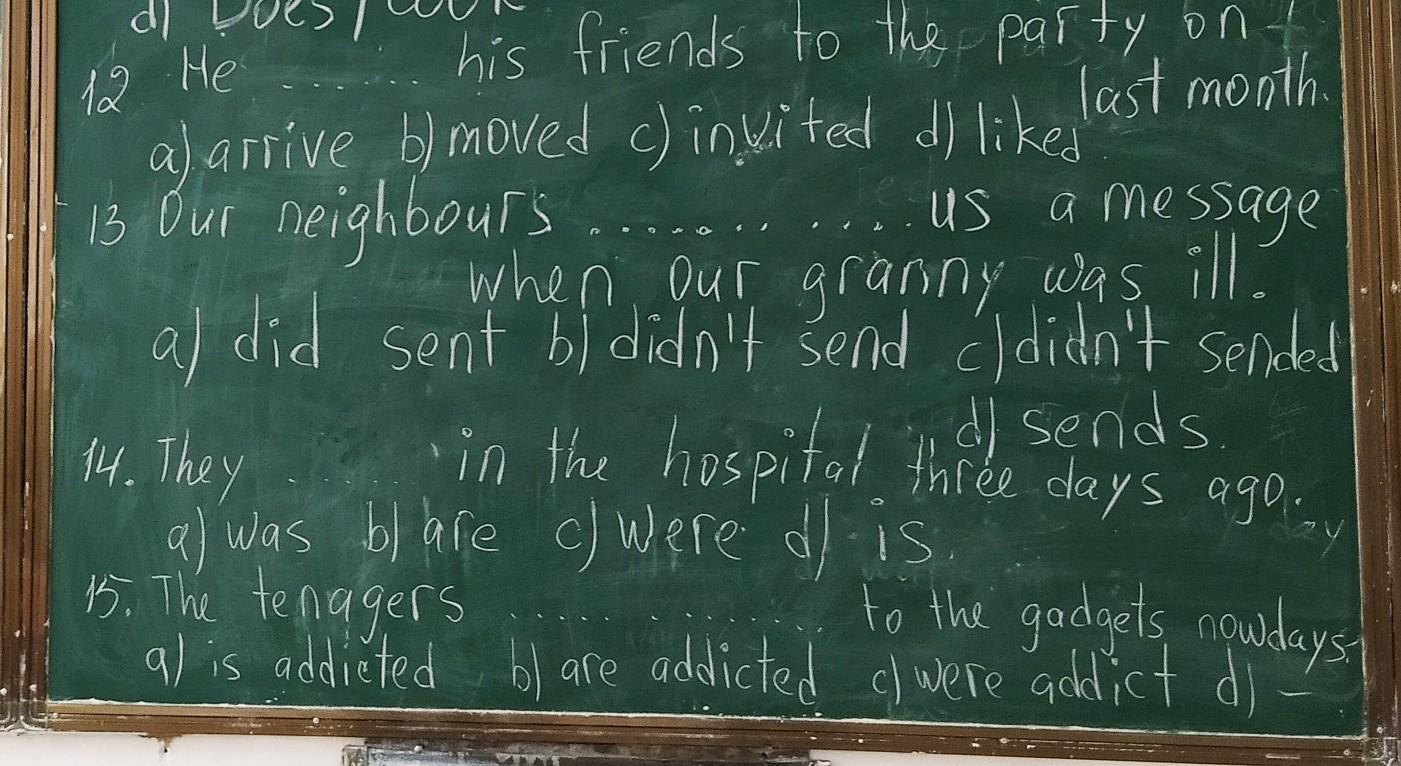 d) Does / cook
12 He ....... his friends to the party on
last month.
a) arrive b) moved c) invited d) liked
13 Our neighbours ............ us a message
when our granny was ill.
a) did sent b) didn't send c) didn't sended
d) sends.
14. They ....... in the hospital three days ago.
a) was b) are c) were d) is.
15. The tenagers ............. to the gadgets nowdays.
a) is addicted b) are addicted c) were addict d) –